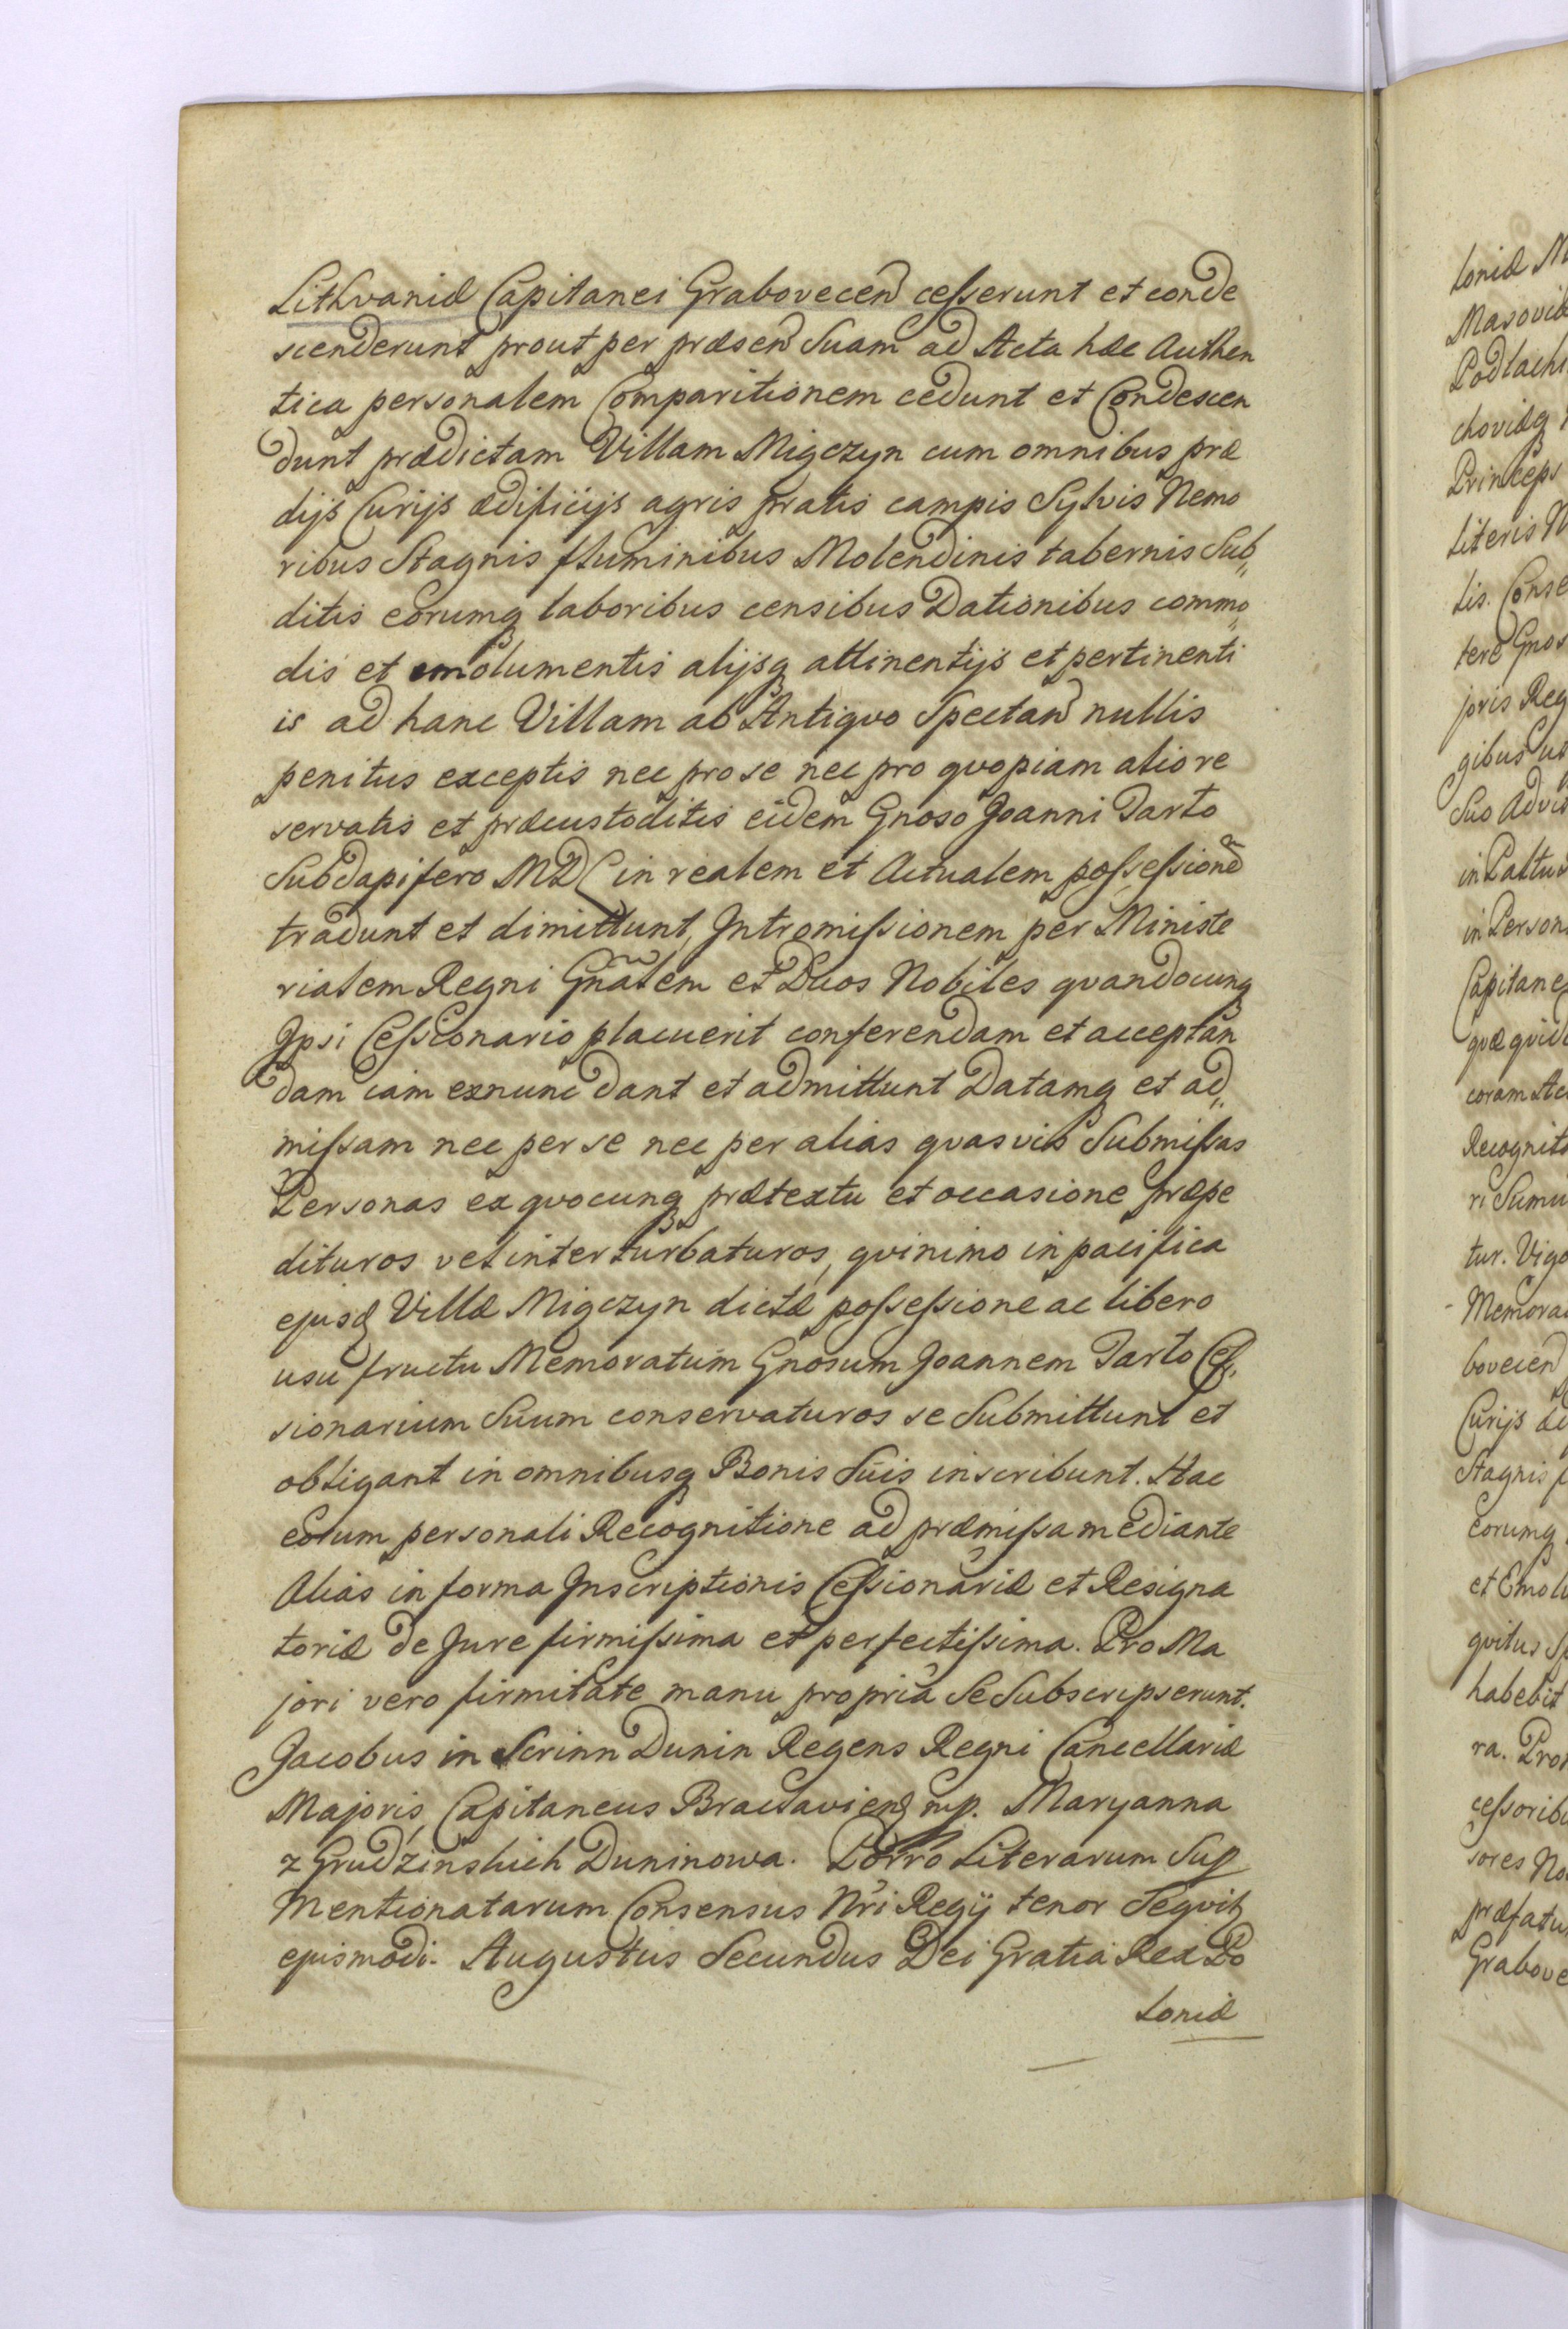 Lithvaniæ Capitanei Grabovecen̄ cesserunt et conde
scenderunt prout per præsen̄ Suam ad Acta hæc Authen
tica personalem Comparitionem cedunt et Condescen
dunt prædictam Villam Migczyn cum omnibus præ
dijs Curijs ædificijs agris pratis campis Sylvis Nemo
ribus Stagnis fluminibus Molendinis tabernis Sub„
ditis eorumq laboribus censibus Dationibus commo„
dis et emolumentis alijsq attinentijs et pertinenti
is ad hanc Villam ab Antiqvo Spectan̄ nullis
penitus exceptis nec pro se nec pro qvopiam alio re
servatis et præcustoditis eidem Gnoso Joanni Tarło
Subdapifero MDL in realem et Actualem possessionē
tradunt et dimittunt, Intromissionem per Ministe
rialem Regni Gñalem et Duos Nobiles qvandocunq
Ipsi Cessionario placuerit conferendam et acceptan
dam iam exnunc dant et admittunt Datamq et ad„
missam nec per se nec per alias qvasvis Submissas
Personas ex qvocunq prætextu et occasione præpe
dituros vel interturbaturos, qvinimo in pacifica
ejusd Villæ Migczyn dictæ possessione ac libero
usu fructu Memoratum Gnosum Joannem Tarło Ces,
sionarium Suum conservaturos se Submittunt et
obligant in omnibusq Bonis Suis inscribunt. Hac
eorum personali Recognitione ad præmissa mediante
Alias in forma Inscriptionis Cessionariæ et Resigna
toriæ de Jure firmissima et perfectissima. Pro Ma
jori vero firmitate manu propria Se Subscripserunt.
Jacobus in Scrinn Dunin Regens Regni Cancellariæ
Majoris, Capitaneus Braclavien mp. Maryanna
z Grudzinskich Duninowa. Porro Literarum Sup
mentionatarum Consensus Nr̃i Regij tenor Seqvit
ejusmodi. Augustus Secundus Dei Gratia Rex Po
loniæ
loniæ M
Masoviæ
Podlachi
choviæq
Princeps
Literis N
lis. Conse
tere Gnos
joris Reg
gibus ut
Suo Advi
in Paltus
in Person
Capitane
qvæ qvid
coram Ac
Recognit
ri Sumu
tur. Vigo
Memora
bovecen̄
Curijs æd
Stagnis f
Eorumq
et Emolu
qvitus Sp
habebit
ra. Pro
cessorib
sores No
præfatu
Grabove